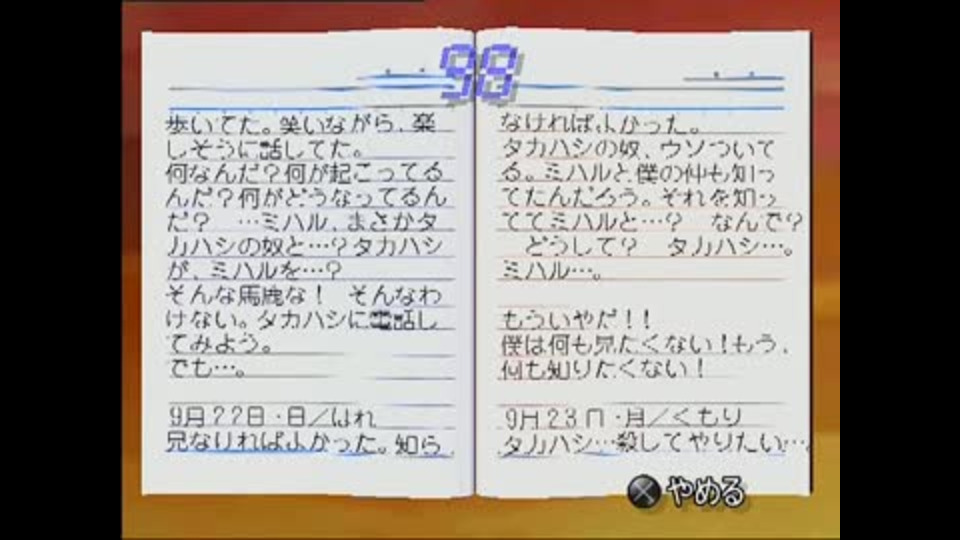 98
歩いてた。笑いながら、楽
しそうに話してた。
何なんだ?何が起こってる
んだ?何がどうなってるん
だ? …ミハル、まさかタ
カハシの奴と…?タカハシ
が、ミハルを…?
そんな馬鹿な! そんなわ
けない。タカハシに電話し
てみよう。
でも…。
9月22日・日/はれ
見なければよかった。知ら
なければよかった。
タカハシの奴、ウソついて
る。ミハルと僕の仲も知っ
てたんだろう。それを知っ
ててミハルと…? なんで?
どうして? タカハシ…。
ミハル…。
もういやだ!!
僕は何も見たくない!もう、
何も知りたくない!
9月23日・月/くもり
タカハシ…殺してやりたい…。
やめる